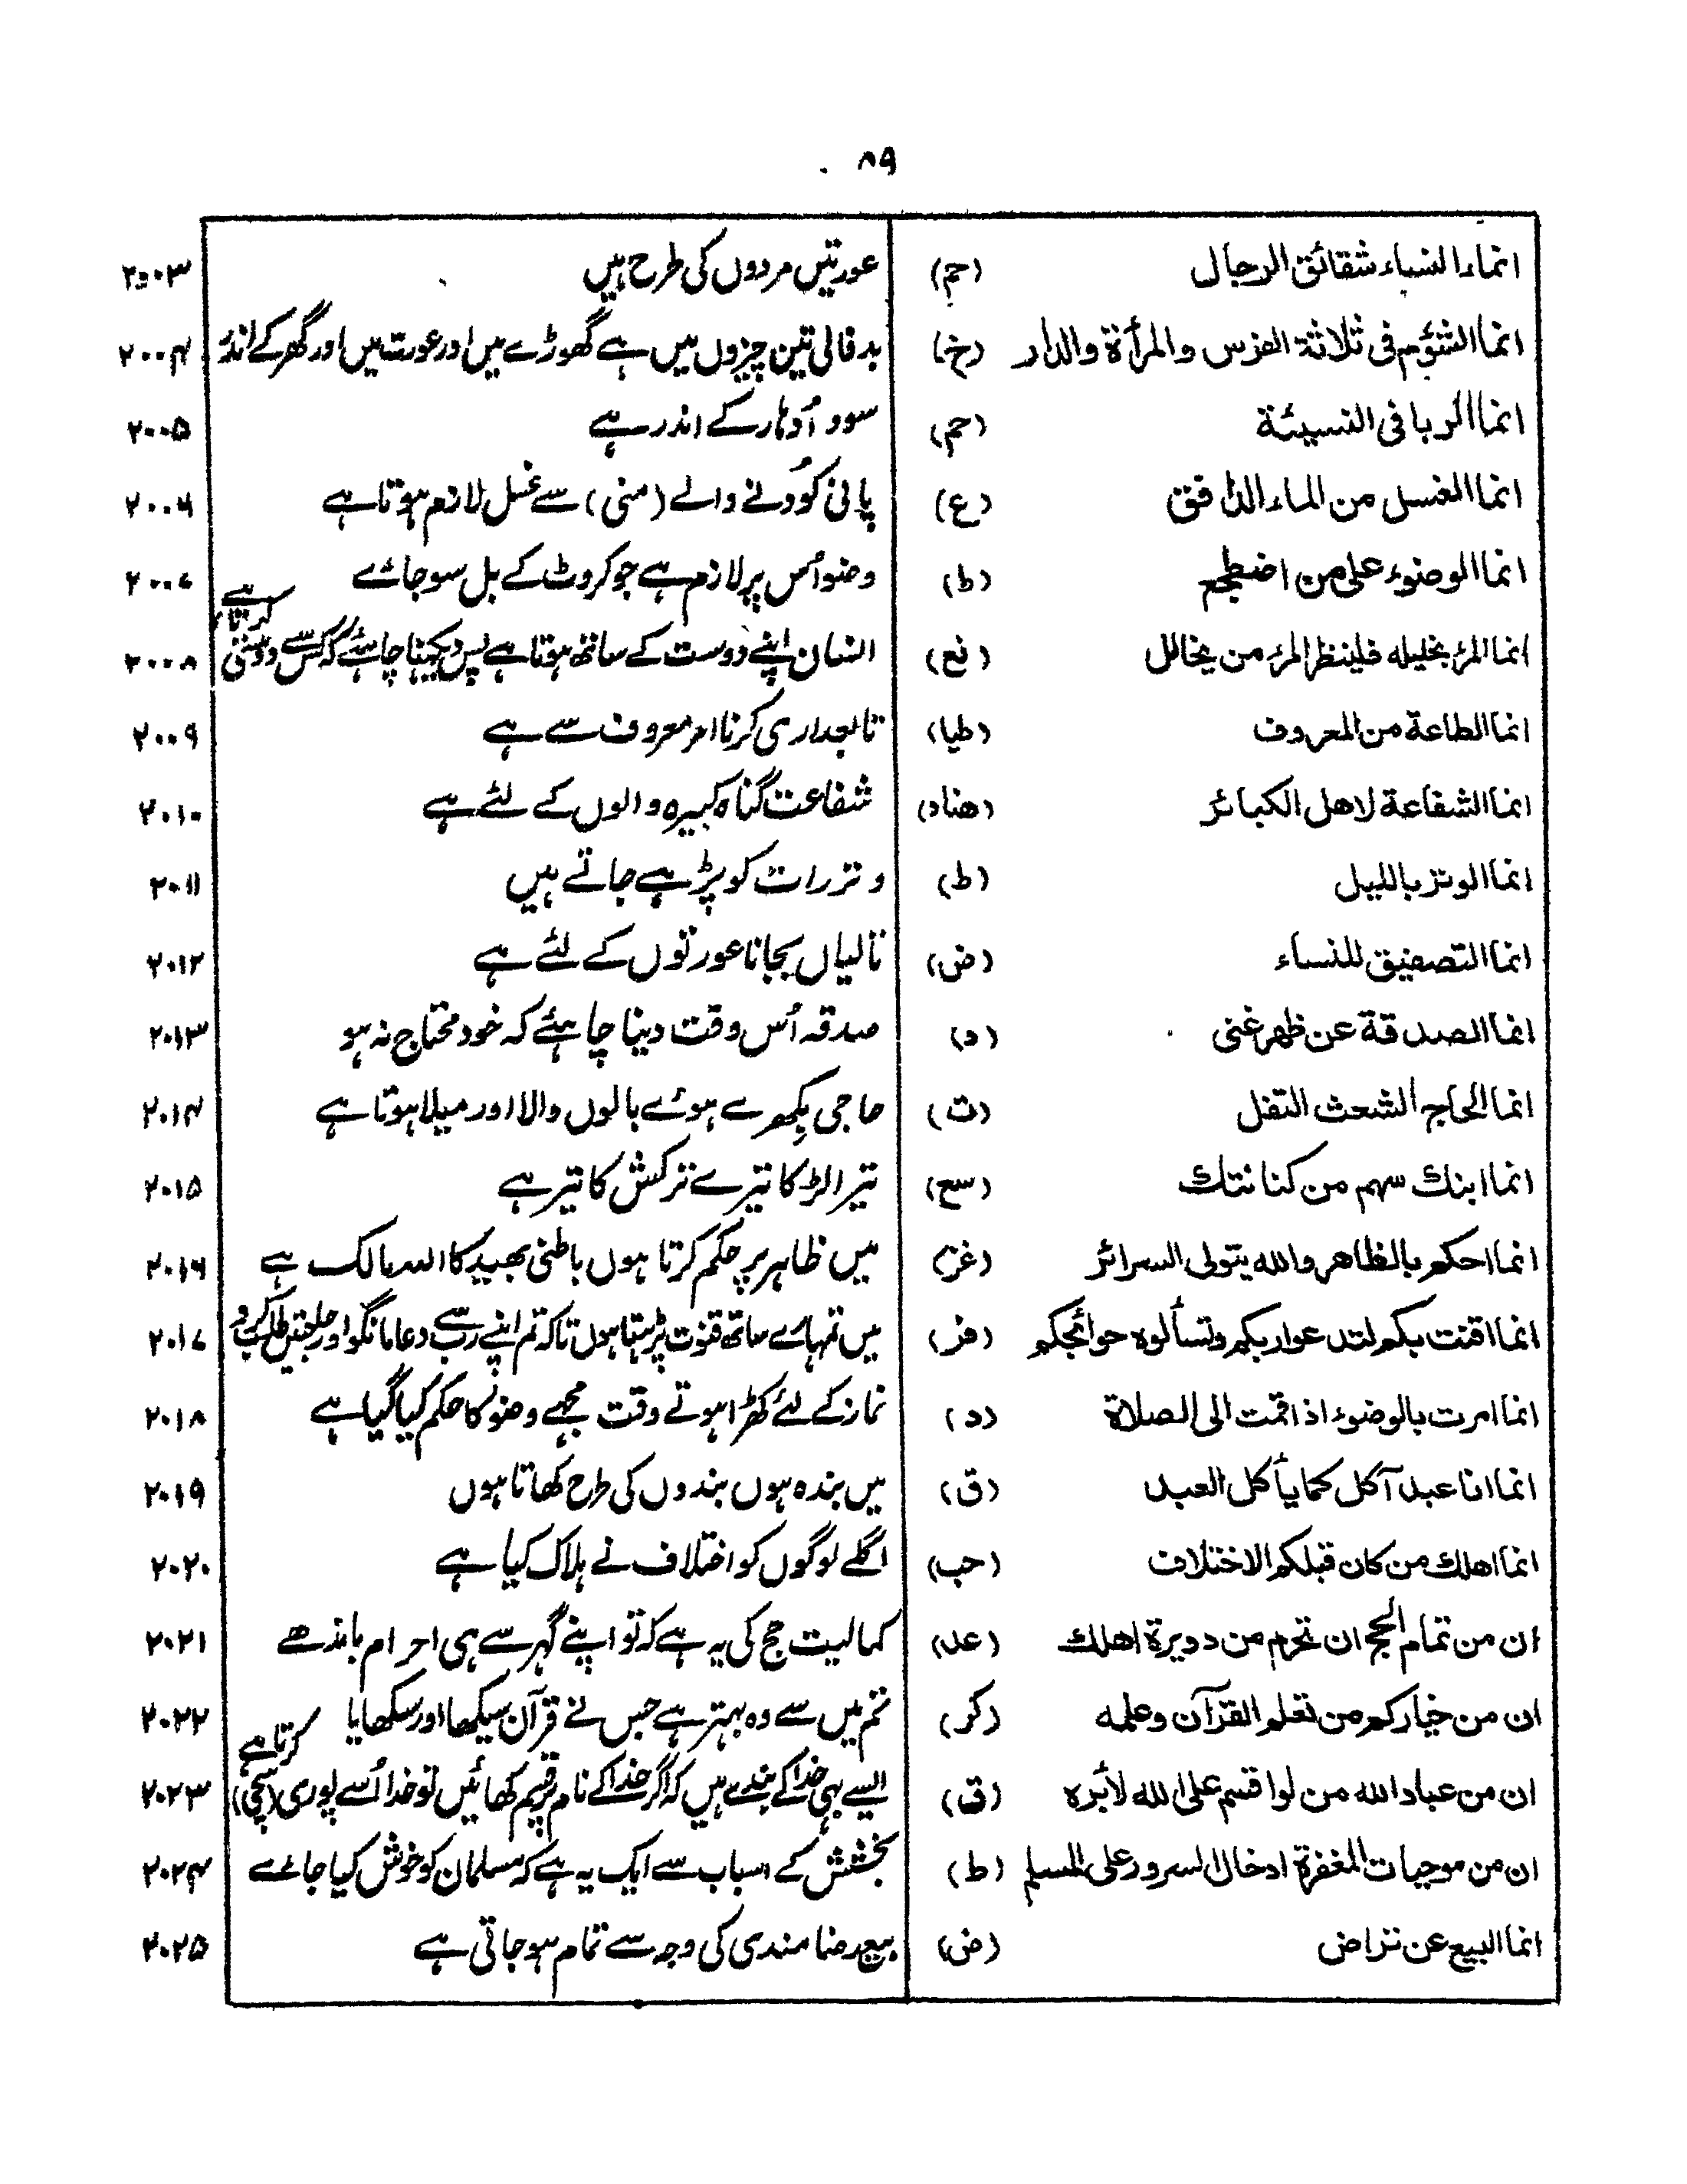 ۸۹
انما النساء شقائق الرجال (حم) عورتیں مردوں کی طرح ہیں ۲۰۰۳
انما الشؤم فی ثلاثة الفرس والمرأة والدار (خ) بدفالی تین چیزوں میں ہے گھوڑے میں اور عورت میں اور گھر کے اندر ۲۰۰۴
انما الربا فی النسیئة (حم) سود اُدہار کے اندر ہے ۲۰۰۵
انما الغسل من الماء الدافق (ع) پانی کودنے والے (منی) سے غسل لازم ہوتا ہے ۲۰۰۶
انما الوضوء علی من اضطجع (ط) وضو اُس پر لازم ہے جو کروٹ کے بل سو جائے ۲۰۰۷
انما المرء بخلیله فلینظر المرء من یخالل (نع) انسان اپنے دوست کے ساتھ ہوتا ہے پس دیکھنا چاہئے کہ کس سے دوستی کرتا ہے ۲۰۰۸
انما الطاعة من المعروف (طیا) تابعداری کرنا امر معروف سے ہے ۲۰۰۹
انما الشفاعة لاهل الکبائر (هناد) شفاعت گناہ کبیرہ والوں کے لئے ہے ۲۰۱۰
انما الوتر باللیل (ط) وتر رات کو پڑہے جاتے ہیں ۲۰۱۱
انما التصفیق للنساء (ض) تالیاں بجانا عورتوں کے لئے ہے ۲۰۱۲
انما الصدقة عن ظهر غنی (د) صدقہ اُس وقت دینا چاہئے کہ خود محتاج نہ ہو ۲۰۱۳
انما الحاج الشعث التفل (ت) حاجی بکھرے ہوئے بالوں والا اور میلا ہوتا ہے ۲۰۱۴
انما ابنك سهم من کنانتك (سع) تیرا لڑکا تیرے ترکش کا تیر ہے ۲۰۱۵
انما احکم بالظاهر والله یتولی السرائر (غز) میں ظاہر پر حکم کرتا ہوں باطنی بھید کا اللہ مالک ہے ۲۰۱۶
انما اقنت بکم لتدعوا ربکم وتسألوه حوائجکم (فر) میں تمہارے ساتھ قنوت پڑہتا ہوں تاکہ تم اپنے رب سے دعا مانگو اور حاجتیں طلب کرو ۲۰۱۷
انما امرت بالوضوء اذا قمت الی الصلاة (د) نماز کے لئے کھڑا ہوتے وقت مجہے وضو کا حکم کیا گیا ہے ۲۰۱۸
انما انا عبد آکل کما یأکل العبد (ق) میں بندہ ہوں بندوں کی طرح کھاتا ہوں ۲۰۱۹
انما اهلك من کان قبلکم الاختلاف (حب) اگلے لوگوں کو اختلاف نے ہلاک کیا ہے ۲۰۲۰
ان من تمام الحج ان تحرم من دویرة اهلك (عد) کمالیت حج کی یہ ہے کہ تو اپنے گہر سے ہی احرام باندھے ۲۰۲۱
ان من خیارکم من تعلم القرآن وعلمه (کر) تم میں سے وہ بہتر ہے جس نے قرآن سیکھا اور سکھایا ۲۰۲۲
ان من عباد الله من لو اقسم علی الله لأبره (ق) ایسے بہی خدا کے بندے ہیں کہ اگر خدا کے نام پر قسم کھائیں تو خدا اُسے پوری (سچی) کرتا ہے ۲۰۲۳
ان من موجبات المغفرة ادخال السرور علی المسلم (ط) بخشش کے اسباب سے ایک یہ ہے کہ مسلمان کو خوش کیا جائے ۲۰۲۴
انما البیع عن تراض (ض) بیع رضامندی کی وجہ سے تمام ہو جاتی ہے ۲۰۲۵